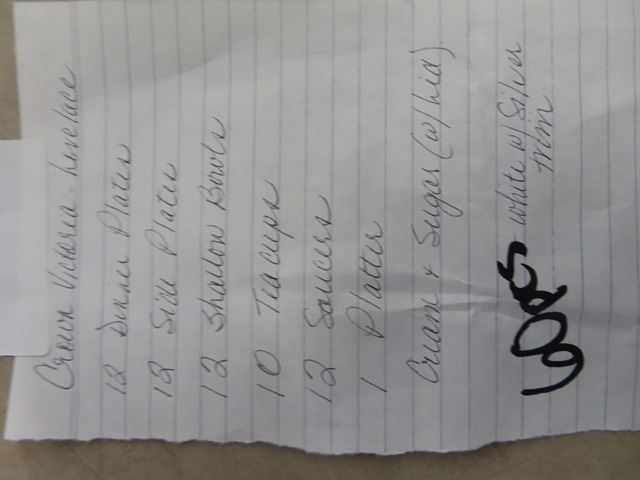 Crown Victoria - Lovelace
12 Dinner Plates
12 Side Plates
12 Shallow Bowls
10 Teacups
12 Saucers
1 Platter
Cream & Sugar (w/Lid)
60 pcs - white w/ Silver
trim